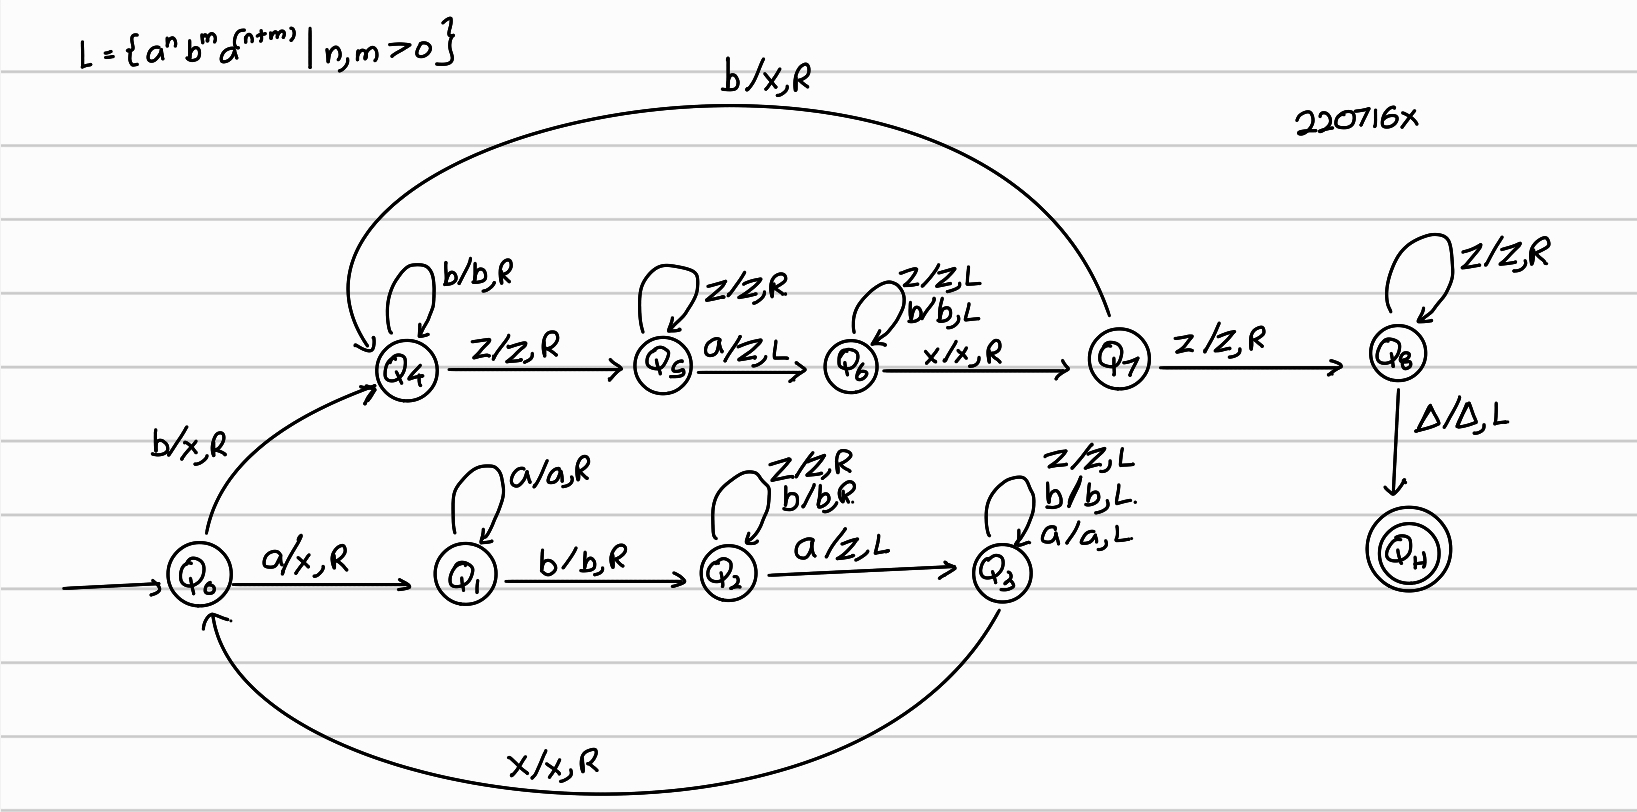 L = {aⁿ bᵐ a⁽ⁿ⁺ᵐ⁾ | n,m >0}
b/x,R
220716x
b/b,R
z/z,R
z/z,L
b/b,L
z/z,R
Q4
z/z,R
Q5
a/z,L
Q6
x/x,R
Q7
z/z,R
Q8
b/x,R
Δ/Δ,L
a/a,R
z/z,R
b/b,R.
z/z,L
b/b,L.
a/a,L
Q0
a/x,R
Q1
b/b,R
Q2
a/z,L
Q3
QH
x/x,R